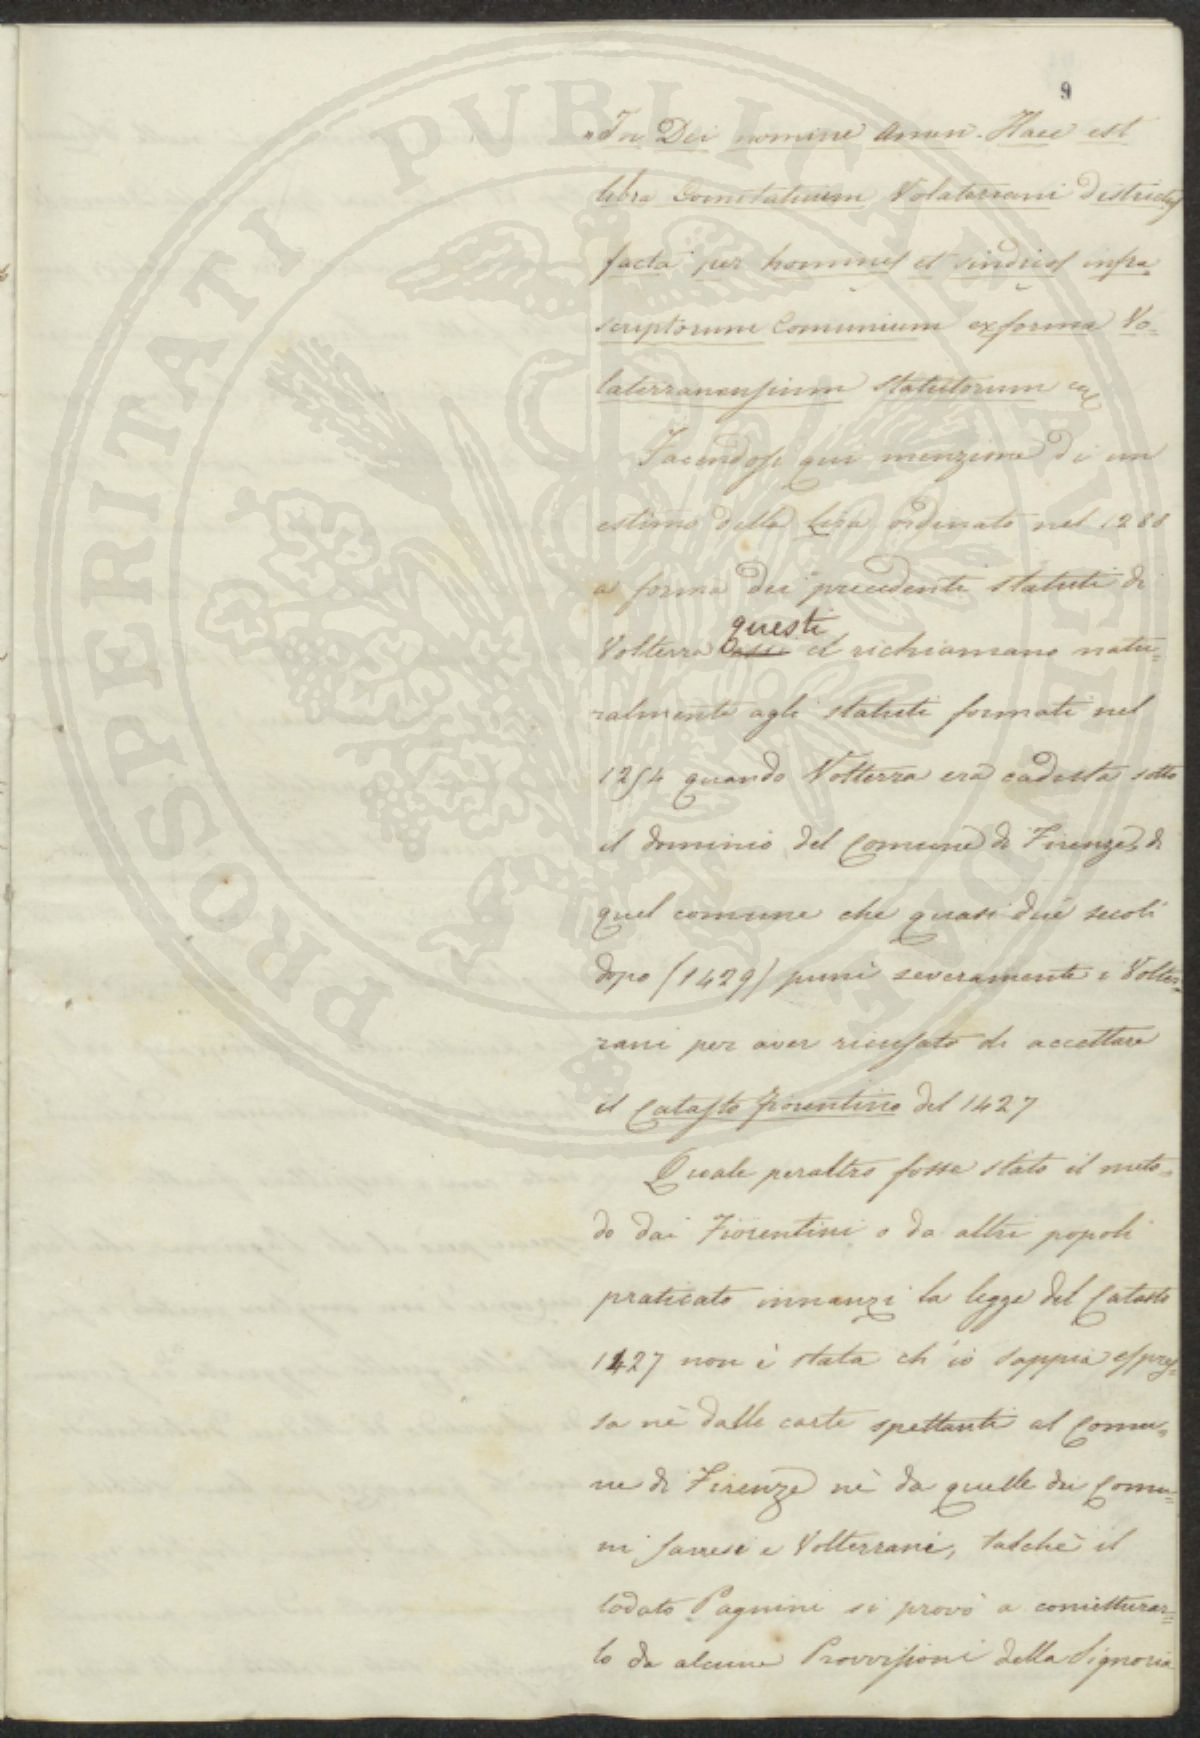 9
"In Dei nomine Amen. Haec est
libra Comitatuum Volaterrani districtus
facta per homines et sindicos infra=
scriptorum Comunium ex forma Vo=
laterranensium statutorum
Facendosi qui menzione di un
estimo della Lira ordinato nel 1288
a forma dei precedenti statuti di
questi
Volterra ci richiamano natu=
ralmente agli statuti formati nel
1254 quando Volterra era caduta sotto
il dominio del Comune di Firenze, di
quel comune che quasi due secoli
dopo (1429) punì severamente i Volter=
rani per aver ricusato di accettare
il Catasto fiorentino del 1427
Quale peraltro fosse stato il meto=
do dai Fiorentini o da altri popoli
praticato innanzi la legge del Catasto
1427 non è stata ch'io sappia espres=
sa nè dalle carte spettanti al Comu=
ne di Firenze nè da quelle dei Comu=
ni Sanesi e Volterrani, talchè il
lodato Pagnini si provò a conietturar=
lo da alcune Provvisioni della Signoria
PROSPERITATI PVBLICAE AVGENDAE